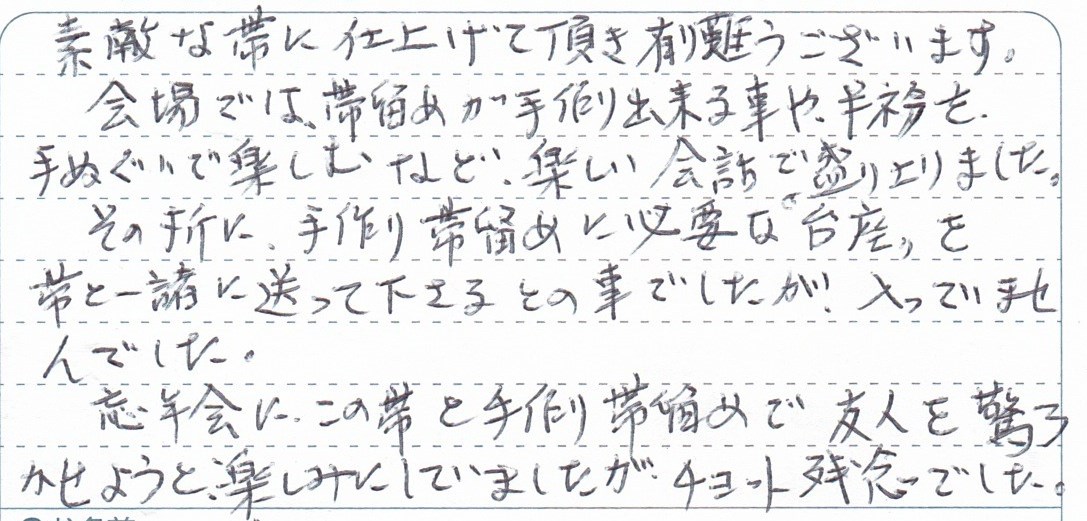 素敵な帯に仕上げて頂き有難うございます。
会場では、帯留めが手作り出来る事や、半衿を
手ぬぐいで楽しむなど、楽しい会話で盛り上りました。
その折に、手作り帯留めに必要な〝台座〟を
帯と一諸に送って下さるとの事でしたが、入っていませ
んでした。
忘年会に、この帯と手作り帯留めで友人を驚ろ
かせようと、楽しみにしていましたが、チョット残念でした。